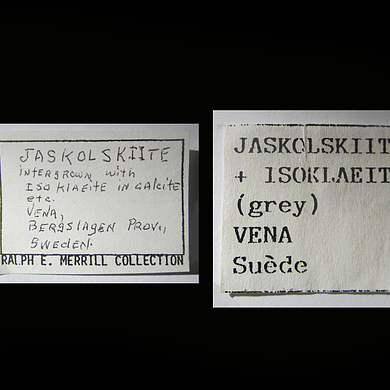 JASKOLSKIITE
intergrown with
ISOKLAEITE in CALCITE
etc.
VENA,
BERGSLAGEN PROV.,
SWEDEN.
RALPH E. MERRILL COLLECTION
JASKOLSKIIT
+ ISOKLAEIT
(grey)
VENA
Suède